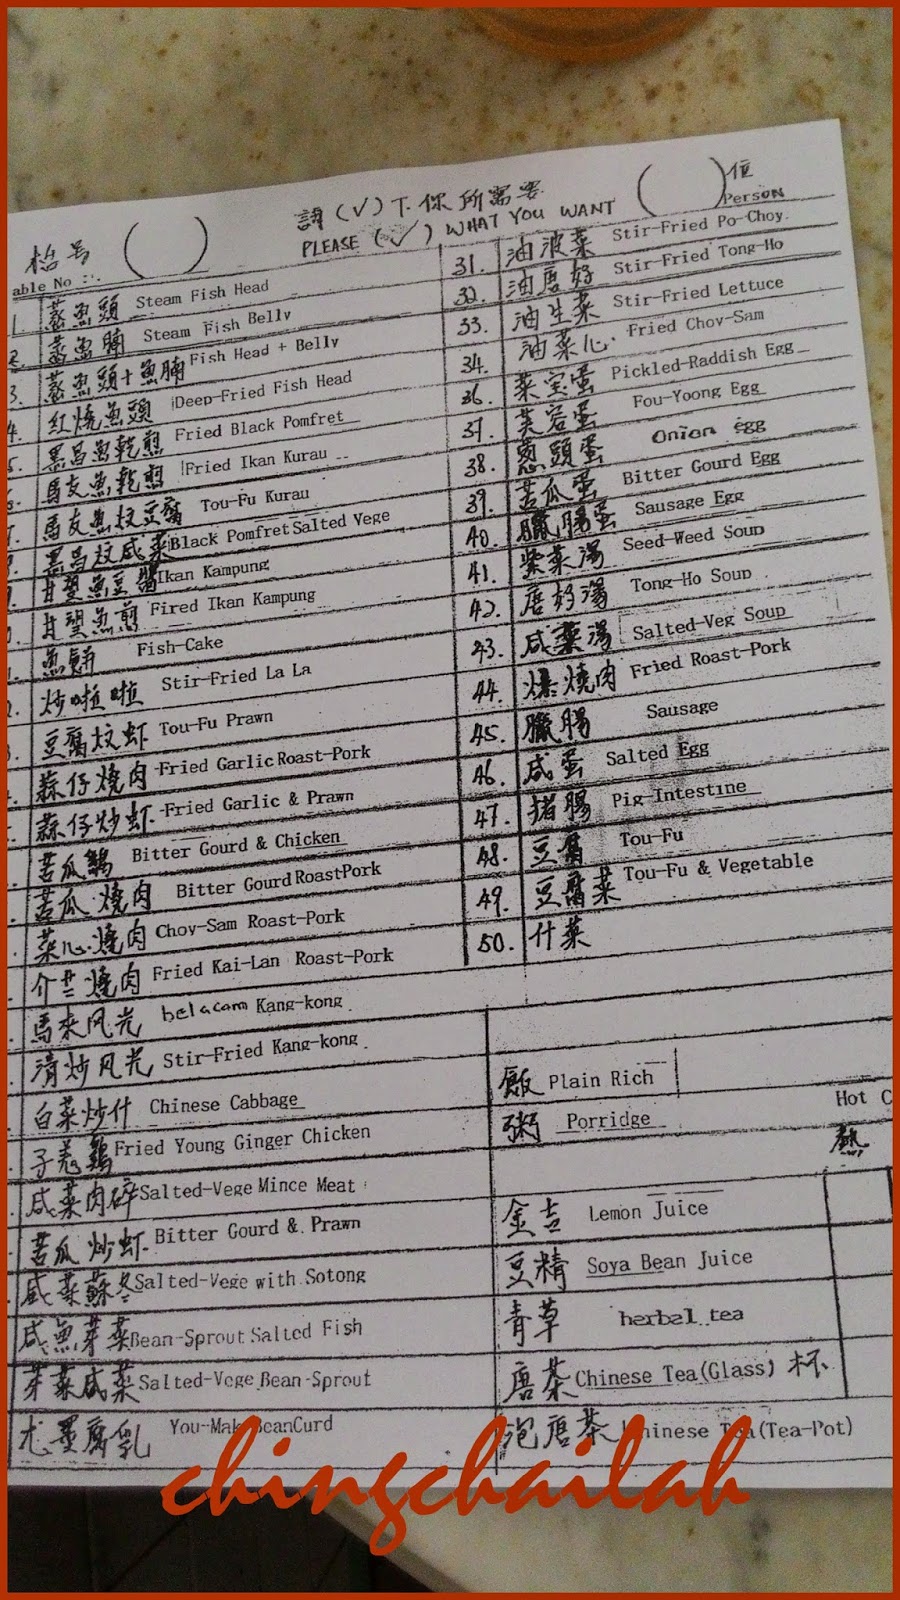 請(✓)下你所需要 ( ) 位
PLEASE (✓) WHAT YOU WANT Person
枱号 ( )
able No
1. 蒸魚頭 Steam Fish Head
2. 蒸魚腩 Steam Fish Belly
3. 蒸魚頭+魚腩 Fish Head + Belly
4. 紅燒魚頭 Deep-Fried Fish Head
5. 黑昌魚乾煎 Fried Black Pomfret
馬友魚乾煎 Fried Ikan Kurau
7. 馬友魚炆豆腐 Tou-Fu Kurau
黑昌炆咸菜 Black Pomfret Salted Vege
甘望魚豆醬 Ikan Kampung
甘望魚煎 Fired Ikan Kampung
魚餅 Fish-Cake
炒啦啦 Stir-Fried La La
豆腐炆虾 Tou-Fu Prawn
蒜仔燒肉 Fried Garlic Roast-Pork
蒜仔炒虾 Fried Garlic & Prawn
苦瓜鷄 Bitter Gourd & Chicken
苦瓜燒肉 Bitter Gourd RoastPork
菜心燒肉 Choy-Sam Roast-Pork
介兰燒肉 Fried Kai-Lan Roast-Pork
馬來风光 belacam Kang-kong
清炒风光 Stir-Fried Kang-kong
白菜炒什 Chinese Cabbage
子姜鷄 Fried Young Ginger Chicken
咸菜肉碎 Salted-Vege Mince Meat
苦瓜炒虾 Bitter Gourd & Prawn
咸菜蘇冬 Salted-Vege with Sotong
咸魚芽菜 Bean-Sprout Salted Fish
芽菜咸菜 Salted-Vege Bean-Sprout
尤墨腐乳 You-Mak BeanCurd
31. 油波菜 Stir-Fried Po-Choy
32. 油唐好 Stir-Fried Tong-Ho
33. 油生菜 Stir-Fried Lettuce
34. 油菜心 Fried Choy-Sam
36. 菜宝蛋 Pickled-Raddish Egg
37. 芙蓉蛋 Fou-Yoong Egg
38. 葱頭蛋 onion egg
39. 苦瓜蛋 Bitter Gourd Egg
40. 臘腸蛋 Sausage Egg
41. 紫菜湯 Seed-Weed Soup
42. 唐好湯 Tong-Ho Soup
43. 咸菜湯 Salted-Veg Soup
44. 燒肉 Fried Roast-Pork
45. 臘腸 Sausage
46. 咸蛋 Salted Egg
47. 猪腸 Pig Intestine
48. 豆腐 Tou-Fu
49. 豆腐菜 Tou-Fu & Vegetable
50. 什菜
飯 Plain Rich
粥 Porridge
Hot C
熱
金吉 Lemon Juice
豆精 Soya Bean Juice
青草 herbal tea
唐茶 Chinese Tea(Glass) 杯
泡唐茶 Chinese Tea(Tea-Pot)
chingchailah